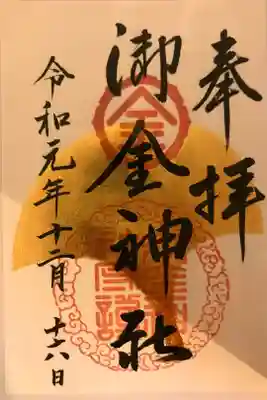 奉拝
御金神社
令和元年十二月十六日